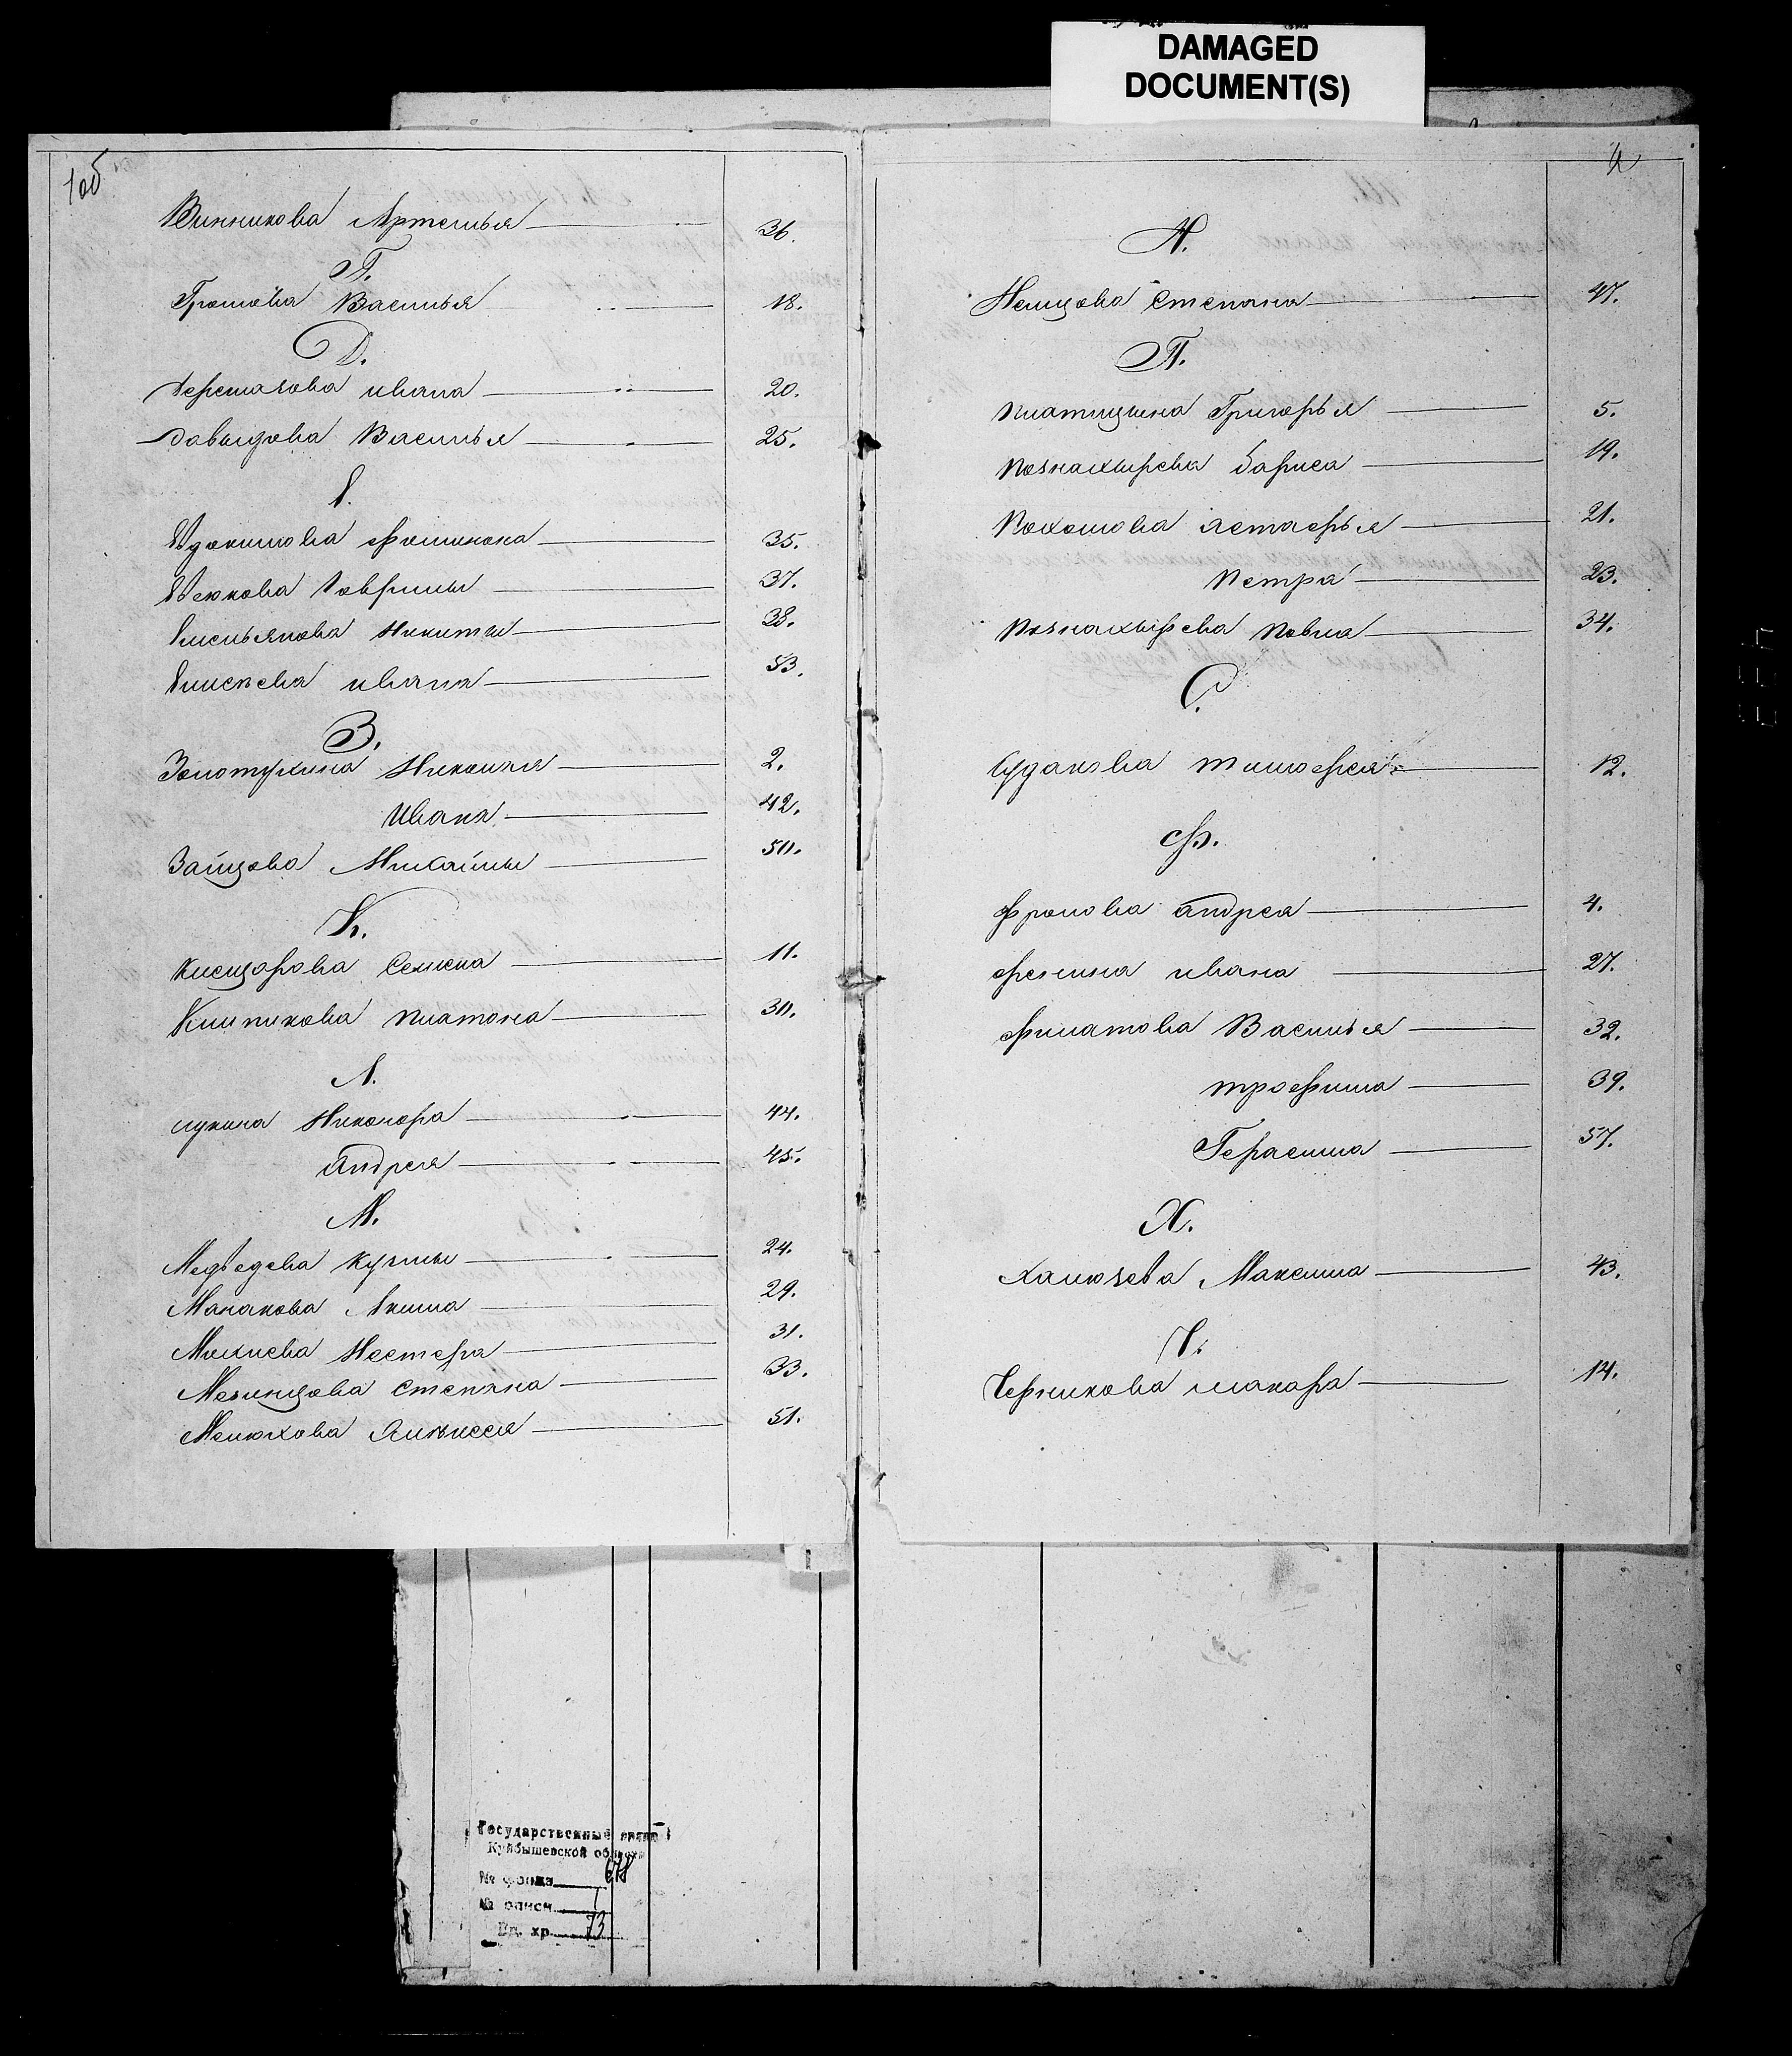 DAMAGED
DOCUMENT(S)
1об
Винникова Артемья 36.
Г.
Громова Василья 18.
Д.
Дерешазова ивана 20.
Давыдова Василья 25.
Е.
Евдокимова Филимона 35.
37.
Емельянова Никиты 38.
Елисеева ивана 53.
З.
Золотухина Николая 2.
Ивана 42.
Зайцова Михайлы 50.
К.
Кисщорова Семена 11.
Клипикова платона 30.
Л.
лукина Никонора 44.
Андрея 45.
М.
Медведева Кузмы 24.
Манакова Акима 29.
Михиева Нестера 31.
Мезинцова Степана 33.
Мелюхова Алексея 51.
2
Н.
Немцова Степана 47.
П.
платицына Григорья 5.
познахырева бориса 19.
Похомова Астафья 21.
Петра 23.
познахырева павла 34.
С.
Судакова тимофея 12.
Ф.
Фролова Андрея 4.
Фенина ивана 27.
Филатова Василья 32.
трофима 39.
Герасима 57.
Х.
Халюзева Максима 43.
Ч.
Черникова макара 14.
Государственный архив
Куйбышевской области
№ фонда 678
№ описи 1
Ед. хр. 73